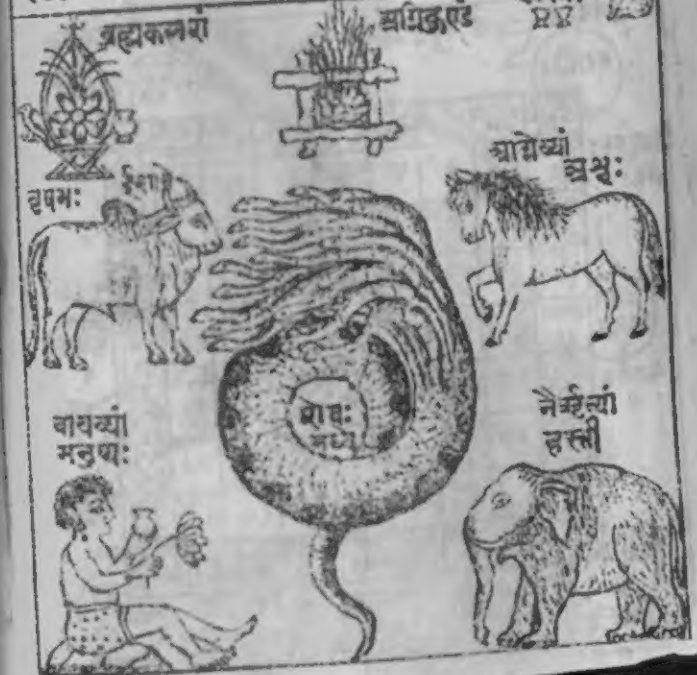 ब्रह्मकलशं
अग्निकुण्डं
वृषभः
आग्नेय्यां
अश्वः
मध्ये
वायव्यां
मनुष्यः
नैर्ऋत्यां
हस्ती